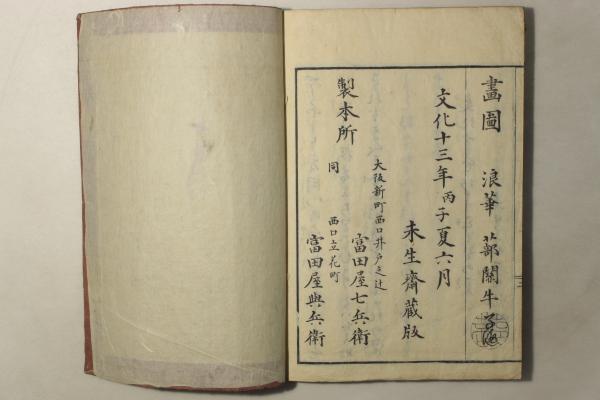 畫圖 浪華 蔀關牛
文化十三年丙子夏六月
未生齋藏版
製本所
大阪新町西口井戸之辻
富田屋七兵衛
同 西口立花町
富田屋與兵衛